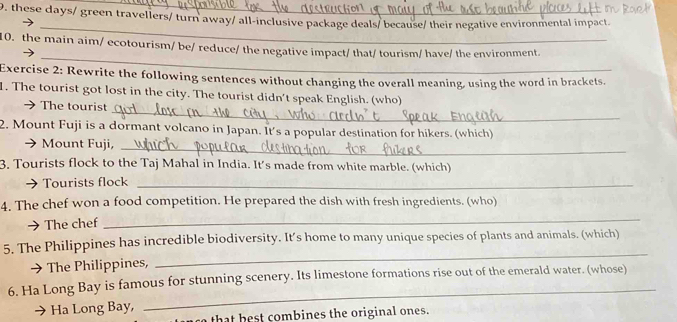 responsible for the destruction of many of the most beautiful places left on Earth
9. these days/ green travellers/ turn away/ all-inclusive package deals/ because/ their negative environmental impact.
→
10. the main aim/ ecotourism/ be/ reduce/ the negative impact/ that/ tourism/ have/ the environment.
→
Exercise 2: Rewrite the following sentences without changing the overall meaning, using the word in brackets.
1. The tourist got lost in the city. The tourist didn't speak English. (who)
→ The tourist got lose in the city, who ardn't speak English
2. Mount Fuji is a dormant volcano in Japan. It's a popular destination for hikers. (which)
→ Mount Fuji, which popular destination for hikers
3. Tourists flock to the Taj Mahal in India. It's made from white marble. (which)
→ Tourists flock
4. The chef won a food competition. He prepared the dish with fresh ingredients. (who)
→ The chef
5. The Philippines has incredible biodiversity. It's home to many unique species of plants and animals. (which)
→ The Philippines,
6. Ha Long Bay is famous for stunning scenery. Its limestone formations rise out of the emerald water. (whose)
→ Ha Long Bay,
that best combines the original ones.